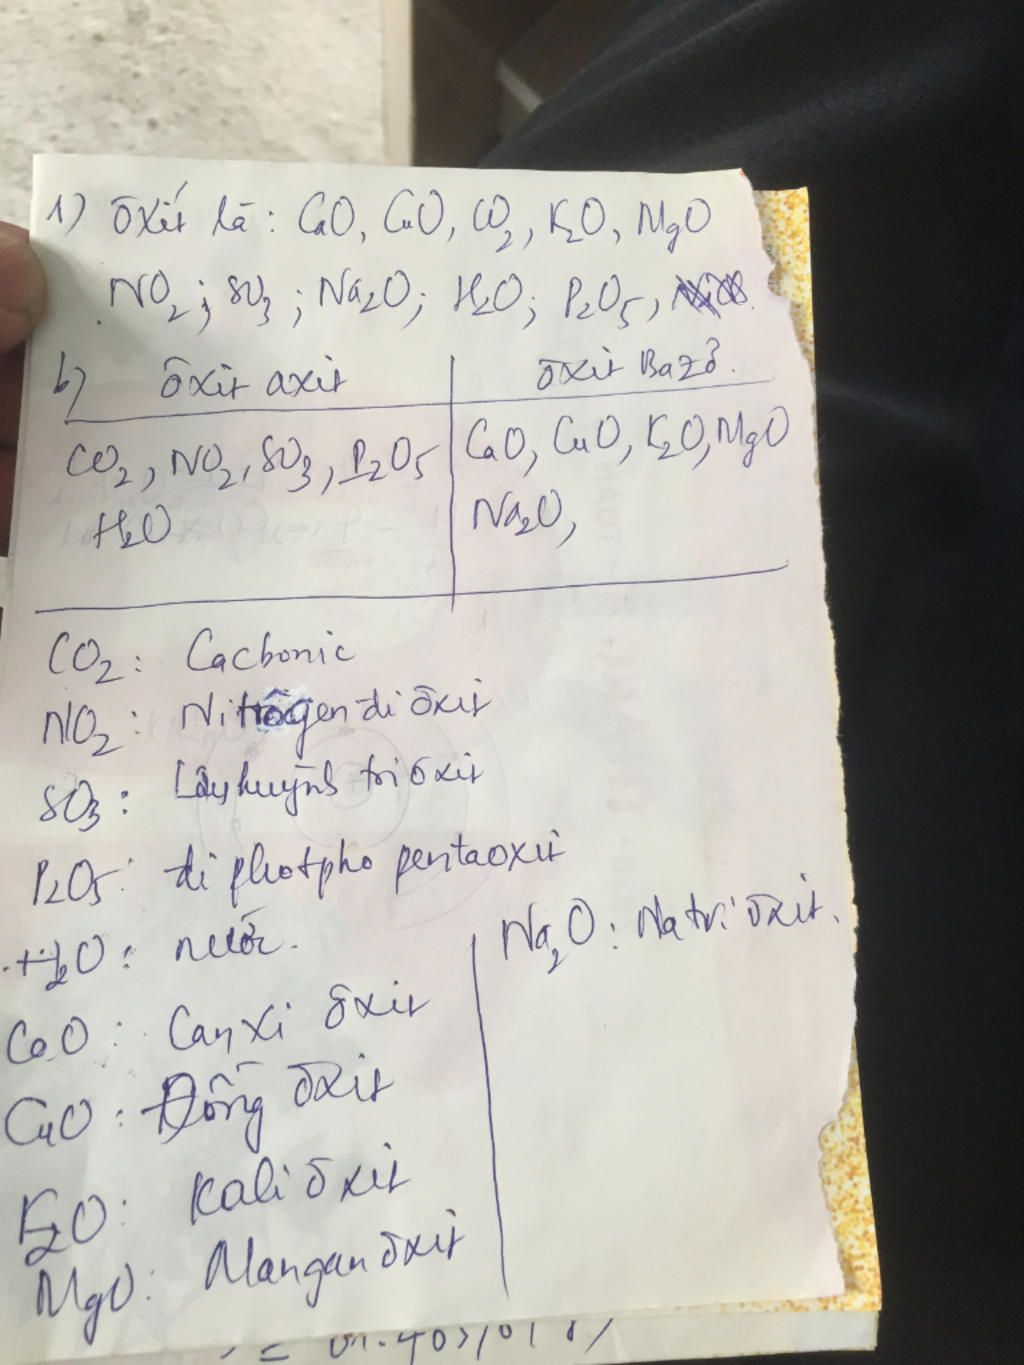 1) ôxít là: CaO, CuO, CO2, K2O, MgO
NO2; SO3; Na2O; H2O; P2O5,
b) ôxit axit | ôxit Bazơ.
CO2, NO2, SO3, P2O5 | CaO, CuO, K2O, MgO
H2O | Na2O,
CO2: Cacbonic
NO2: Nitrôgen đi ôxit
SO3: Lưu huỳnh tri oxit
P2O5: đi photpho pentaoxit
H2O: nước.
Na2O: Natri ôxit.
CaO: Canxi ôxit
CuO: Đồng ôxit
K2O: Kali ôxit
MgO: Mangan ôxit